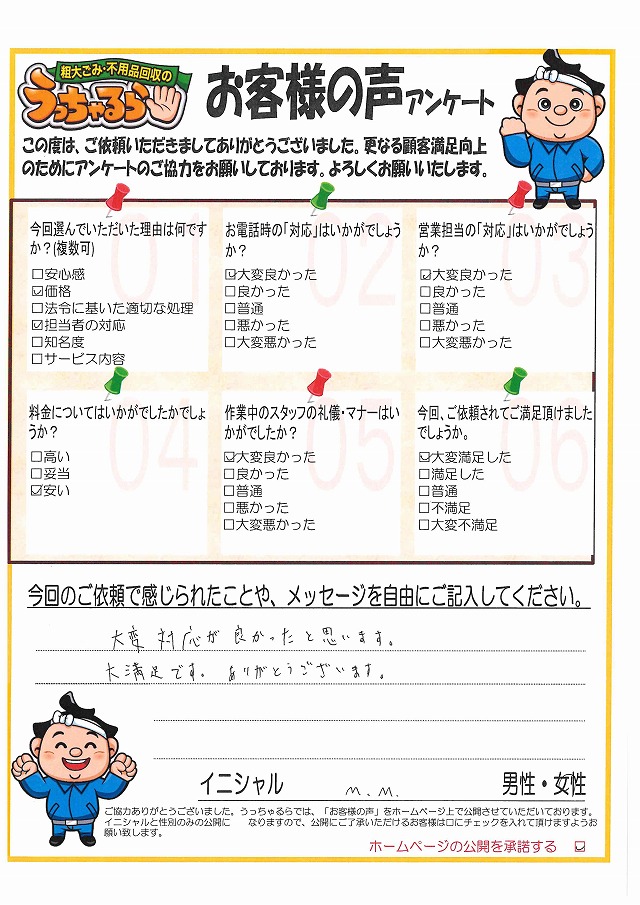 粗大ごみ・不用品回収の
うっちゃるら
お客様の声アンケート
この度は、ご依頼いただきましてありがとうございました。更なる顧客満足向上
のためにアンケートのご協力をお願いしております。よろしくお願いいたします。
01
今回選んでいただいた理由は何です
か？(複数可)
□安心感
☑価格
□法令に基いた適切な処理
☑担当者の対応
□知名度
□サービス内容
02
お電話時の「対応」はいかがでしょう
か？
☑大変良かった
□良かった
□普通
□悪かった
□大変悪かった
03
営業担当の「対応」はいかがでしょう
か？
☑大変良かった
□良かった
□普通
□悪かった
□大変悪かった
04
料金についてはいかがでしたかでしょ
うか？
□高い
□妥当
☑安い
05
作業中のスタッフの礼儀・マナーはい
かがでしたか？
☑大変良かった
□良かった
□普通
□悪かった
□大変悪かった
06
今回、ご依頼されてご満足頂けました
でしょうか。
☑大変満足した
□満足した
□普通
□不満足
□大変不満足
今回のご依頼で感じられたことや、メッセージを自由にご記入してください。
大変対応が良かったと思います。
大満足です。ありがとうございます。
イニシャル M.M. 男性・女性
ご協力ありがとうございました。うっちゃるらでは、「お客様の声」をホームページ上で公開させていただいております。
イニシャルと性別のみの公開に なりますので、公開にご了承いただけるお客様は□にチェックを入れて頂けますようお
願い致します。
ホームページの公開を承諾する ☑